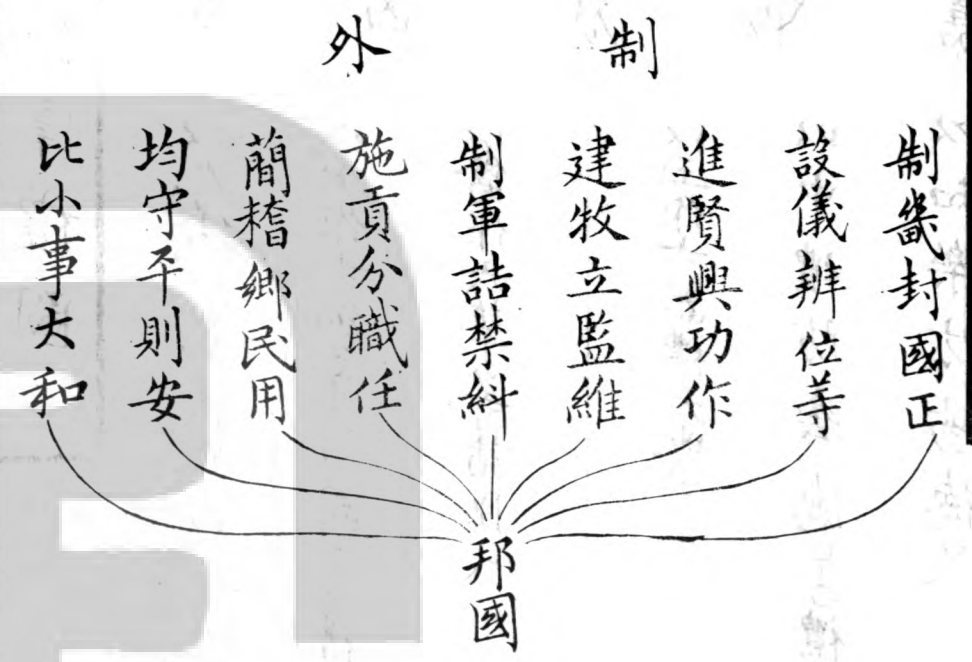 制外
制畿封國正
設儀辨位等
進賢興功作
建牧立監維
制軍詰禁糾
施貢分職任
蕳稽鄉民用
均守平則安
比小事大和
邦國